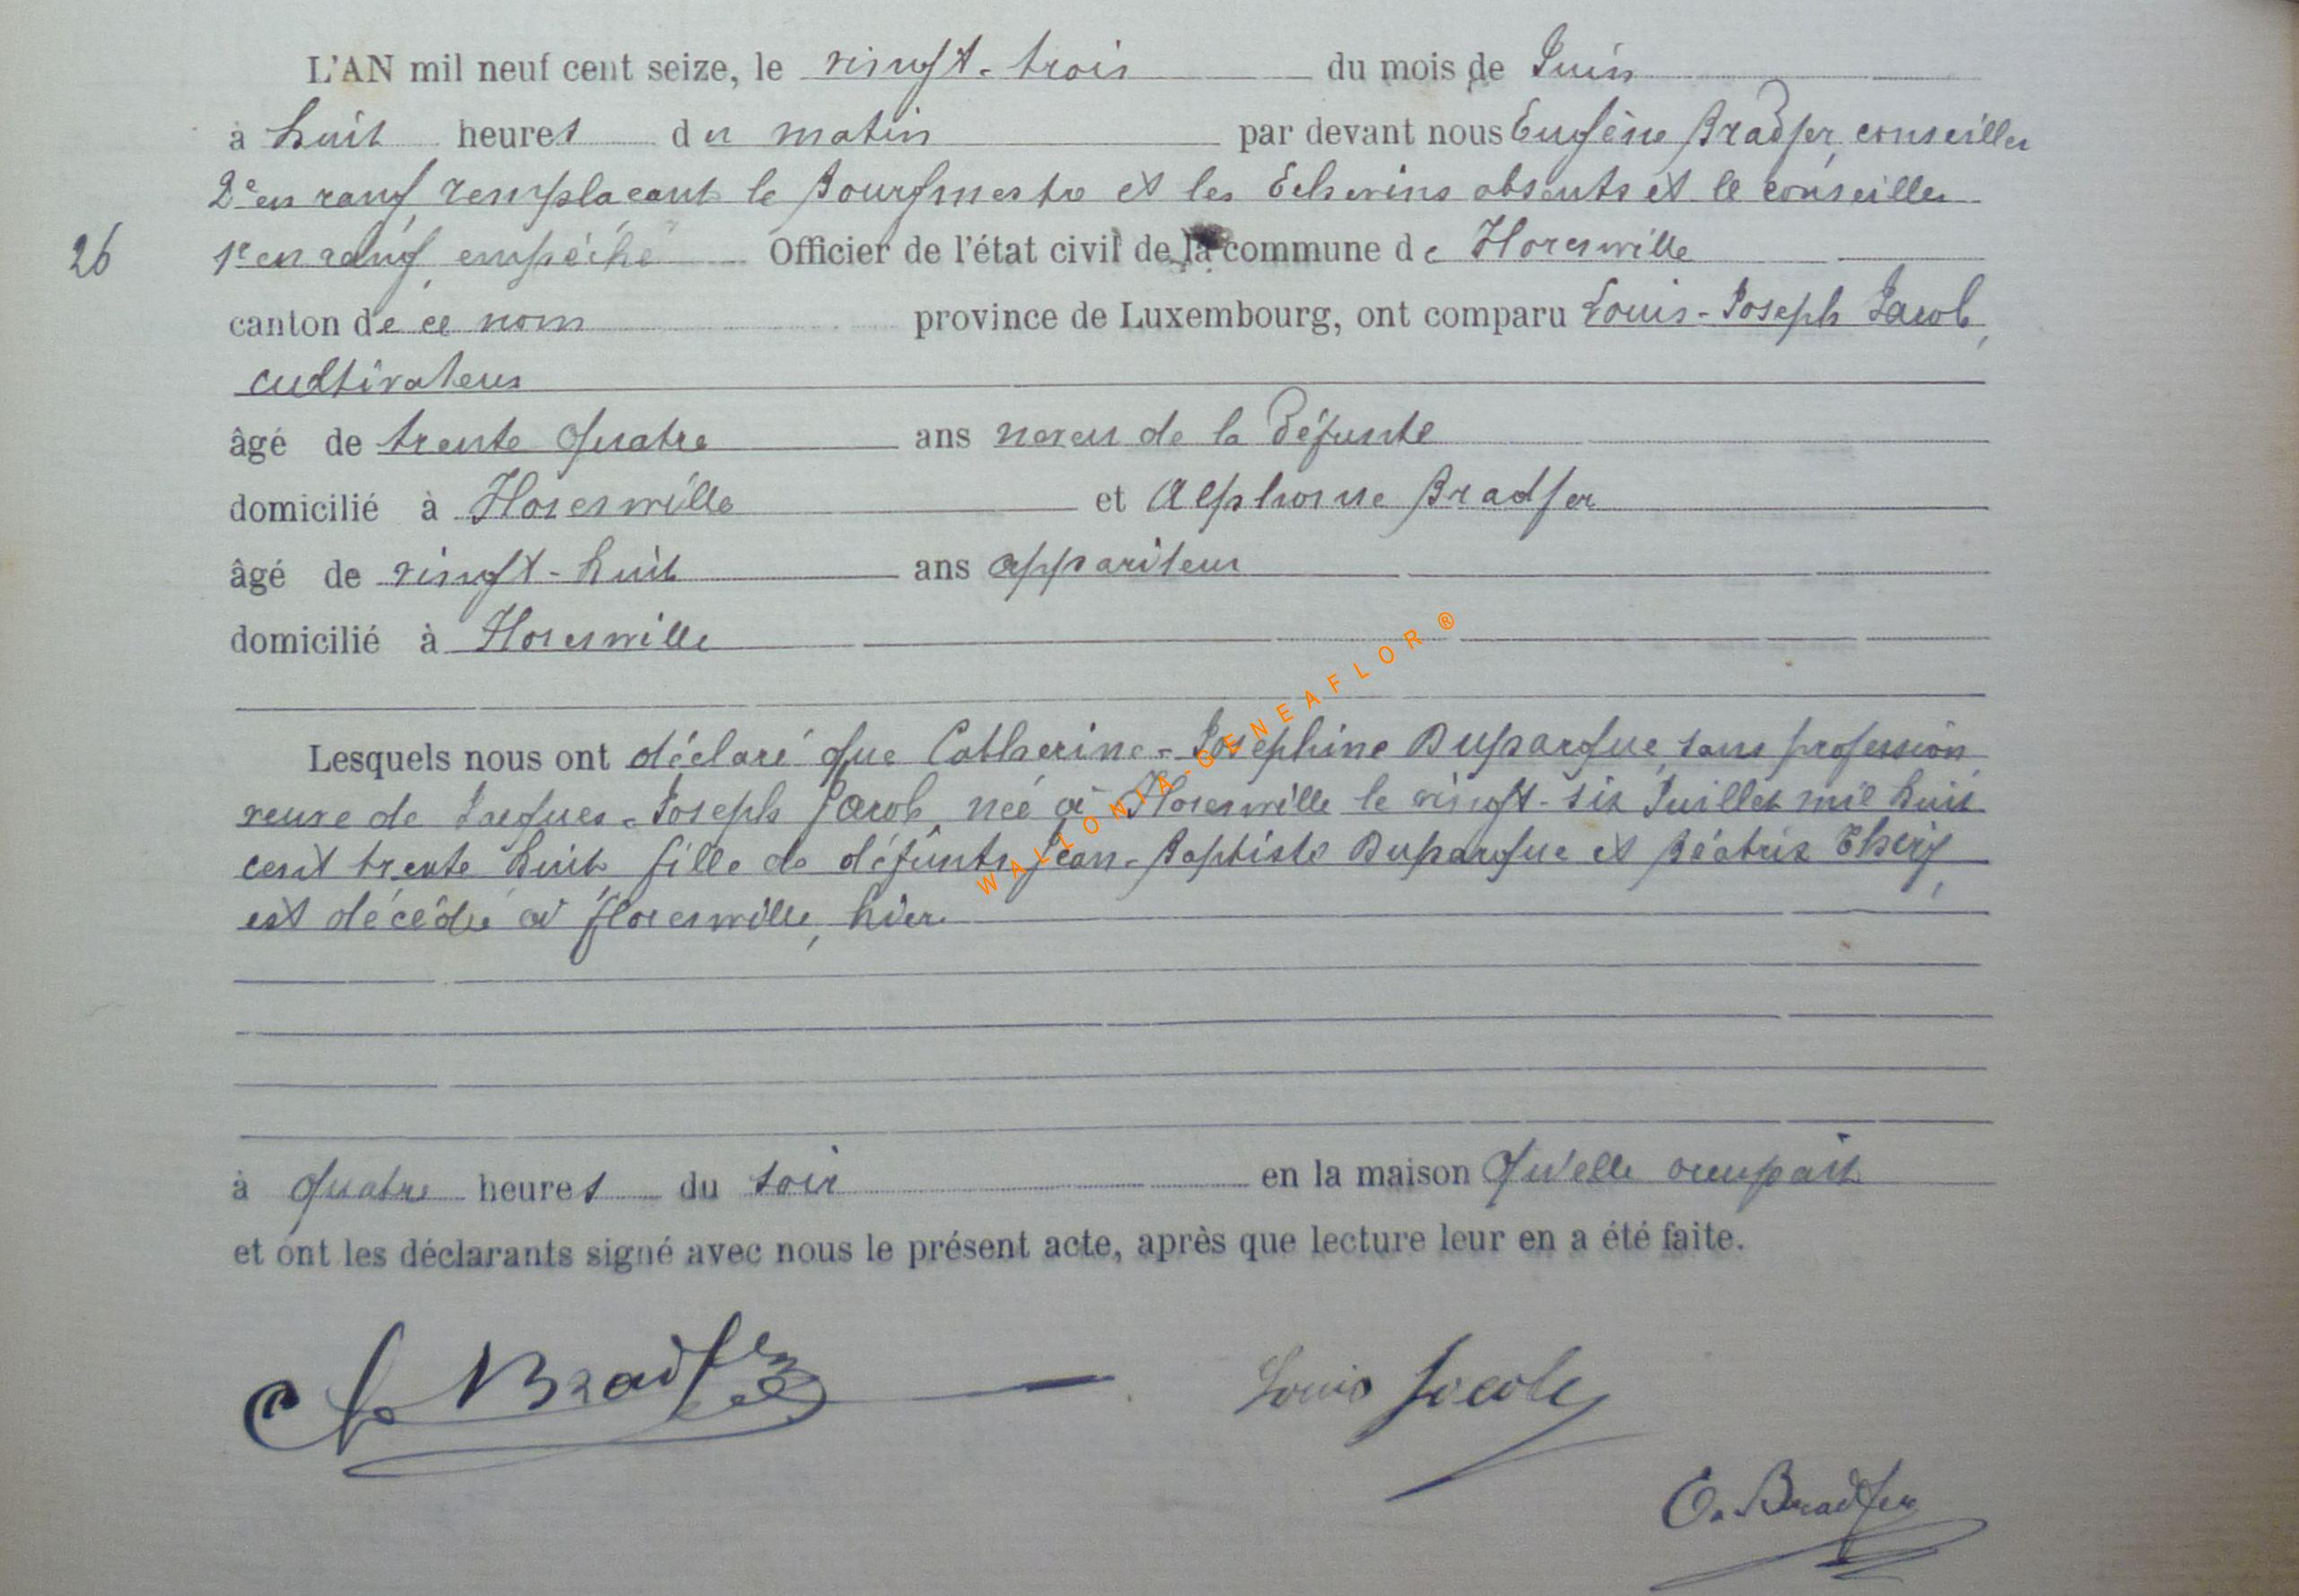 L'AN mil neuf cent seize, le vingt-trois du mois de Juin
à huit heures du matin par devant nous Eugène Bradfer, conseiller
2e en rang, remplaçant le Bourgmestre et les Echevins absents et le conseiller
26 1e en rang, empêché Officier de l'état civil de la commune de Florenville
canton de ce nom province de Luxembourg, ont comparu Louis-Joseph Jacob,
cultivateur
âgé de trente quatre ans neveu de la défunte
domicilié à Florenville et Alphonse Bradfer
âgé de vingt-huit ans appariteur
domicilié à Florenville
Lesquels nous ont déclaré que Catherine-Joséphine Duparque, sans profession,
veuve de Jacques-Joseph Jacob, née à Florenville le vingt-six Juillet mil huit
cent trente huit fille de défunts Jean-Baptiste Duparque et Béatrix Théry,
est décédée à Florenville, hier
à quatre heures du soir en la maison qu'elle occupait
et ont les déclarants signé avec nous le présent acte, après que lecture leur en a été faite.
Bradfer Louis Jacob
E. Bradfer
WALLONIA-GENEAFLOR ®